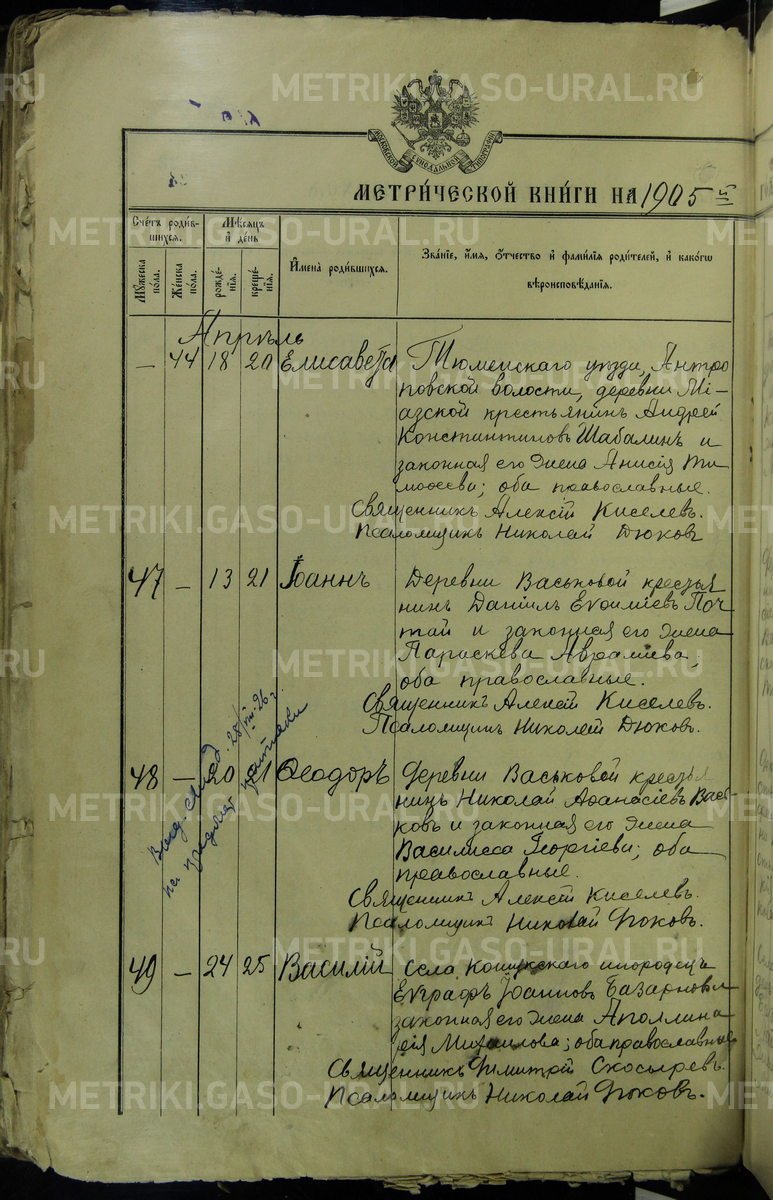 МОСКОВСКОЙ СѶНОДАЛЬНОЙ ТѶПОГРАФІИ
МЕТРИ́ЧЕСКОЙ КНИ́ГИ НА 1905
Сче́тъ роди́вшихся.
Мѣ́сяцъ и де́нь
Му́жеска по́ла.
Же́нска по́ла.
рожде́нїя.
креще́нїя.
И҆мена̀ роди́вшихся.
Зва́нїе, и҆́мя, ѻ҆́тчество и҆ фамı́лїя роди́телей, и҆ како́гѡ
вѣроисповѣ́данїя.
Апрѣль
— 44 18 20 Елисавета Тюменскаго уѣзда, Антро
повской волости, деревни Мі-
азской крестьянинъ Андрей
Константиновъ Шабалинъ и
законная его жена Анисія Ти
моѳеева; оба православные.
Священникъ Алексій Киселевъ.
Псаломщикъ Николай Дюковъ
47 — 13 21 Іоаннъ Деревни Васьковой кресть
нинъ Даніилъ Евѳиміевъ Поч
тай и законная его жена
Параскева Авраміева,
оба православные.
Священникъ Алексей Киселевъ.
Псаломщикъ Николай Дюковъ.
48 — 20 21 Ѳеодоръ Деревни Васьковой крестья
нинъ Николай Аѳанасіевъ Вась
ковъ и законная его жена
Василисса Георгіева; оба
православные.
Священникъ Алексій Киселевъ.
Псаломщикъ Николай Дюковъ.
Выд. свид. 28/VIII 26 г.
49 — 24 25 Василій Села инородецъ
Евграфъ Іоанновъ
законная его жена Аполлина
рія Михаилова; оба православные
Священникъ Димитрій Скосыревъ.
Псаломщикъ Николай Дюковъ.
METRIKI.GASO-URAL.RU